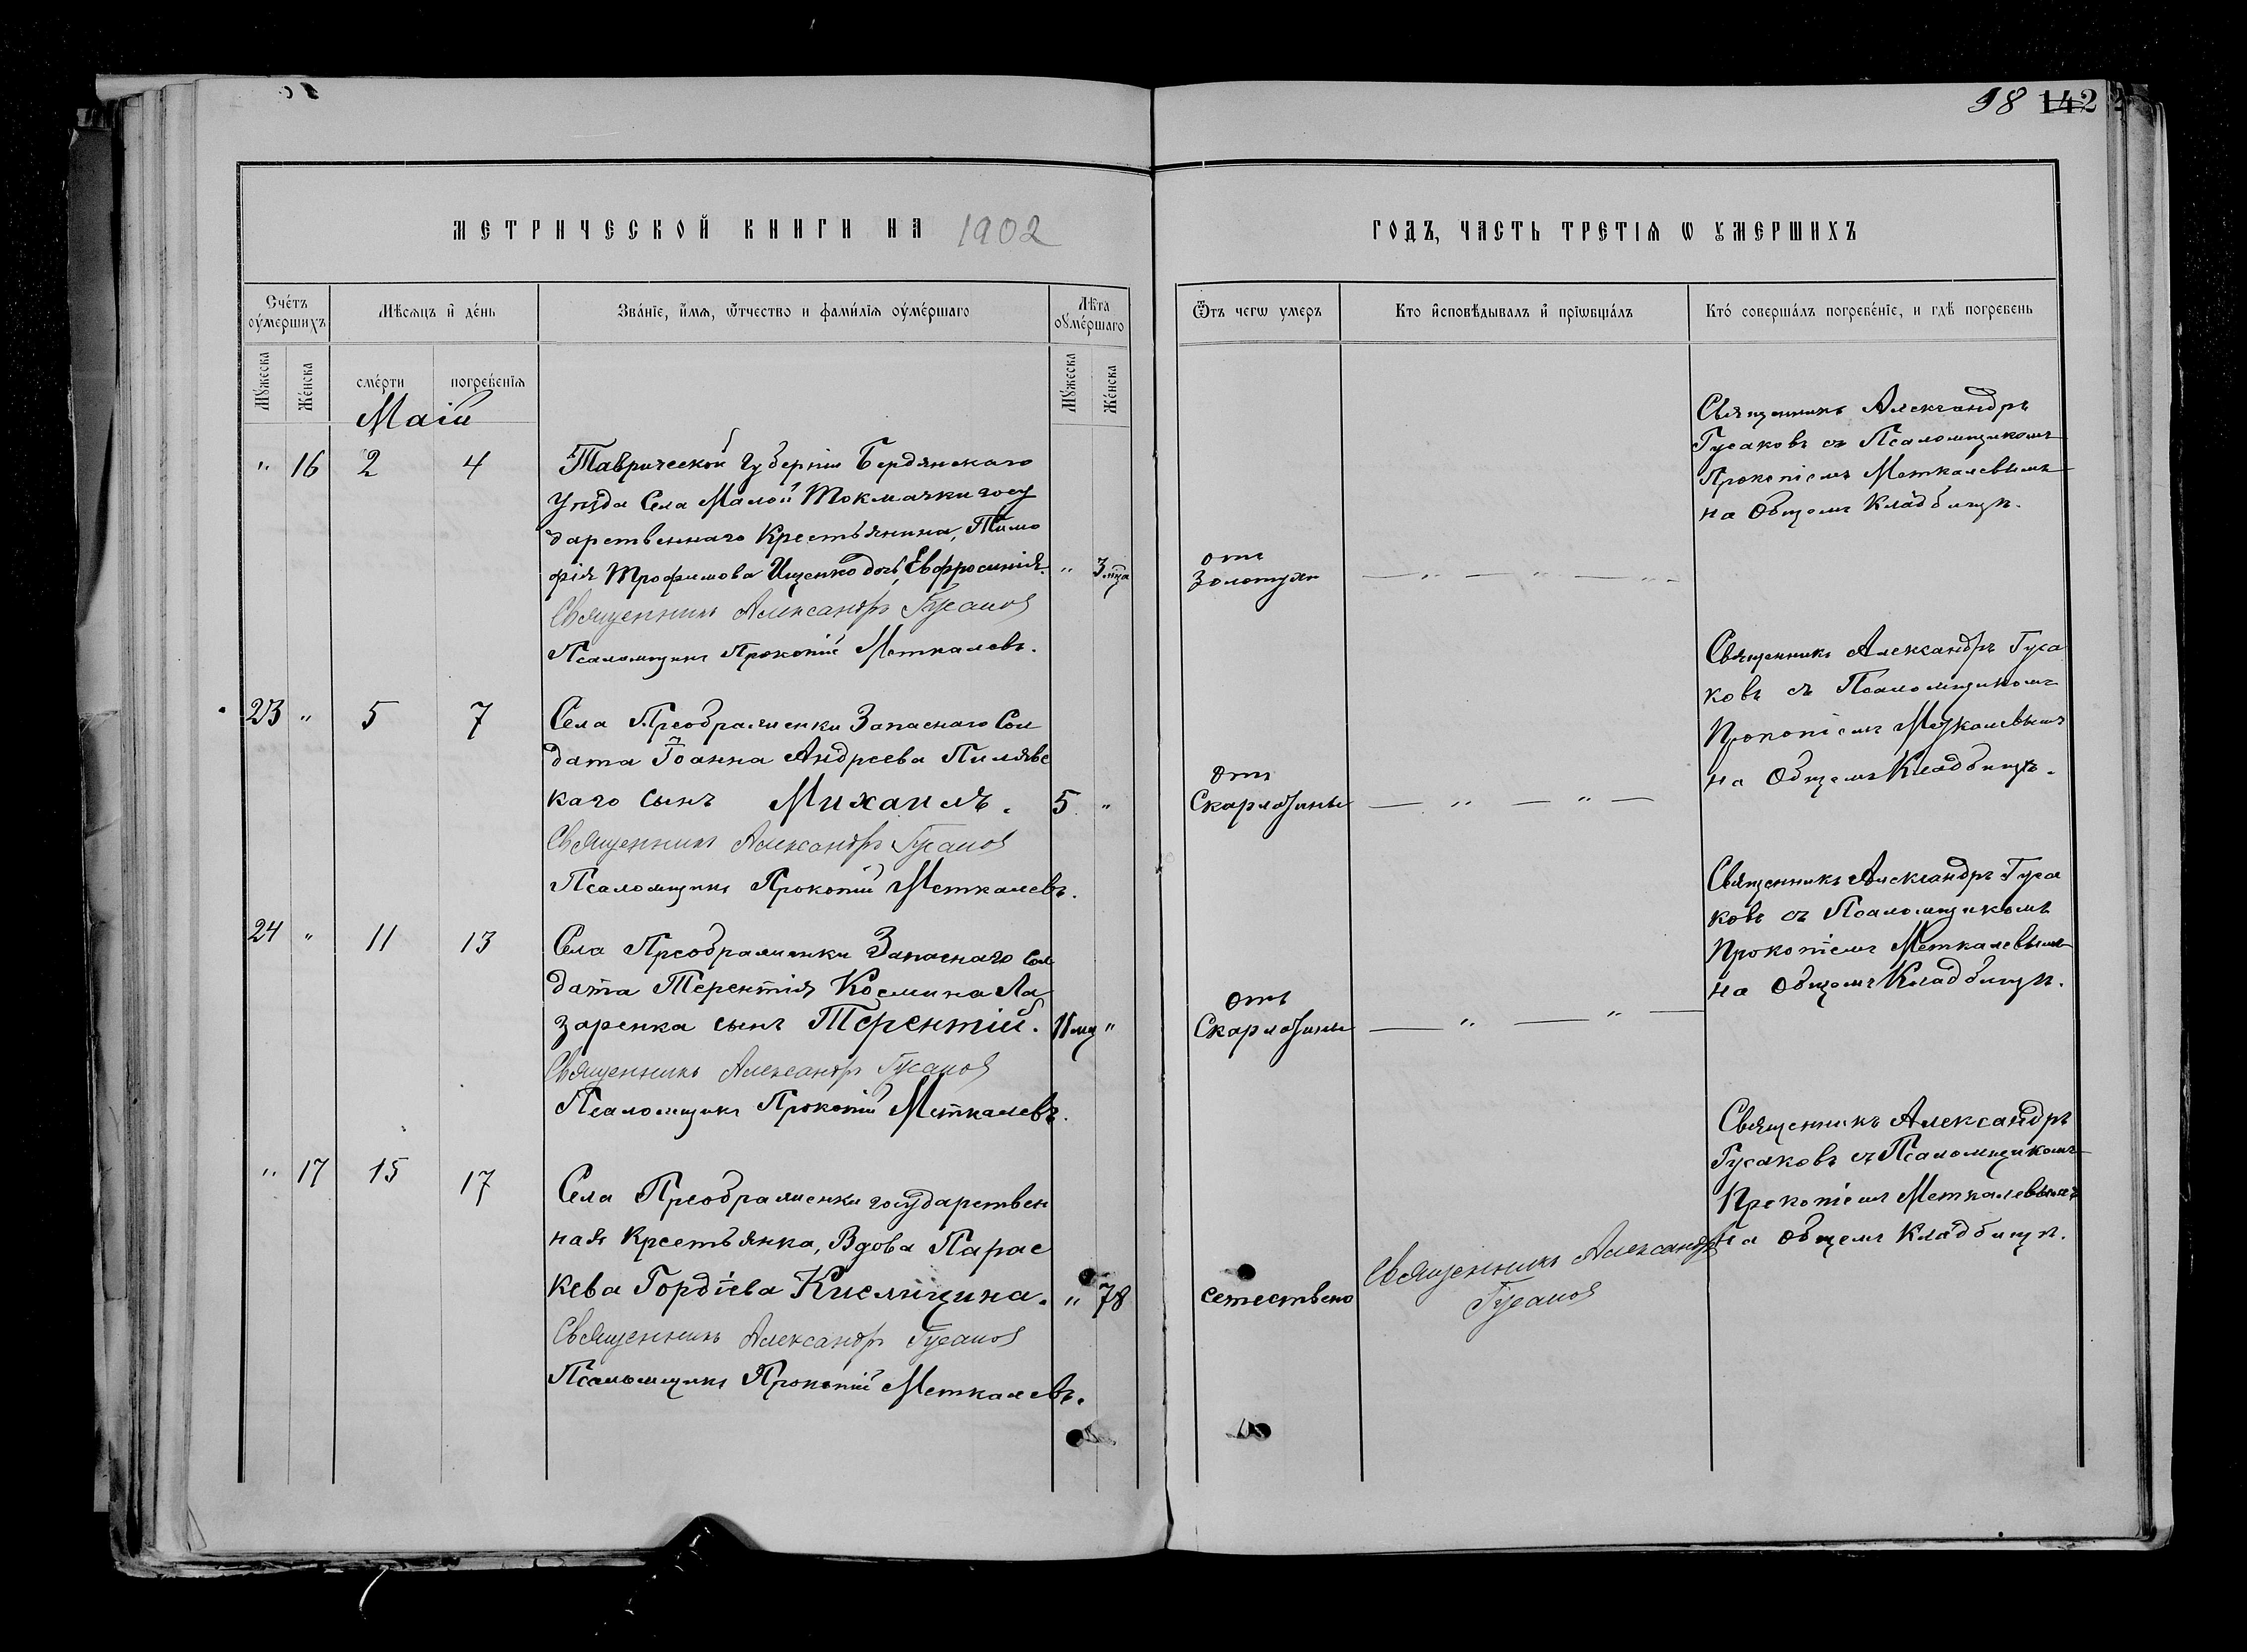 98 142
МЕТРИЧЕСКОЙ КНИГИ НА 1902
ГОДЪ, ЧАСТЬ ТРЕТІѦ Ѡ ꙊМЕРШИХЪ
Счетъ оумершихъ
Мѣсѧцъ и день
Званіе, имѧ, ѿчество и фамиліѧ оумершаго
Лѣта оумершаго
Ѿтъ чегѡ умеръ
Кто исповѣдывалъ и пріѡбщалъ
Кто совершалъ погребеніе, и гдѣ погребенъ
Мꙋжеска
Женска
смерти
погребеніѧ
Мꙋжеска
Женска
Маій
" 16 2 4
Таврической губерніи Бердянскаго
Уѣзда Села Малой Токмачки госу
дарственнаго Крестьянина, Тимо
фія Трофимова Ищенко дочь Евфросинія.
" 3 мца
Священникъ Александръ Гусаковъ
Псаломщикъ Прокопій Меткалевъ.
отъ
Золотухи
— " — " — " -
Священникъ Александръ
Гусаковъ съ Псаломщикомъ
Прокопіемъ Меткалевымъ
на Общемъ Кладбищѣ.
23 " 5 7
Села Преображенки Запаснаго Сол
дата Іоанна Андреева Пилявс
каго сынъ Михаилъ.
5 "
Священникъ Александръ Гусаковъ
Псаломщикъ Прокопій Меткалевъ.
Отъ
Скарлатины
— " — " —
Священникъ Александръ Гуса
ковъ съ Псаломщикомъ
Прокопіемъ Меткалевымъ
на Общемъ Кладбищѣ.
24 " 11 13
Села Преображенки Запаснаго Сол
дата Терентія Космина Ла
заренка сынъ Терентій.
11 мц "
Священникъ Александръ Гусаковъ
Псаломщикъ Прокопій Меткалевъ.
Отъ
Скарлатины
— " — " —
Священникъ Александръ Гуса
ковъ съ Псаломщикомъ
Прокопіемъ Меткалевымъ
на Общемъ Кладбищѣ.
" 17 15 17
Села Преображенки государствен
ная Крестьянка, Вдова Парас
кева Гордіева Кислицина.
" 78
Священникъ Александръ Гусаковъ
Псаломщикъ Прокопій Меткалевъ.
естествено
Священникъ Александръ
Гусаковъ
Священникъ Александръ
Гусаковъ съ Псаломщикомъ
Прокопіемъ Меткалевымъ
на Общемъ Кладбищѣ.